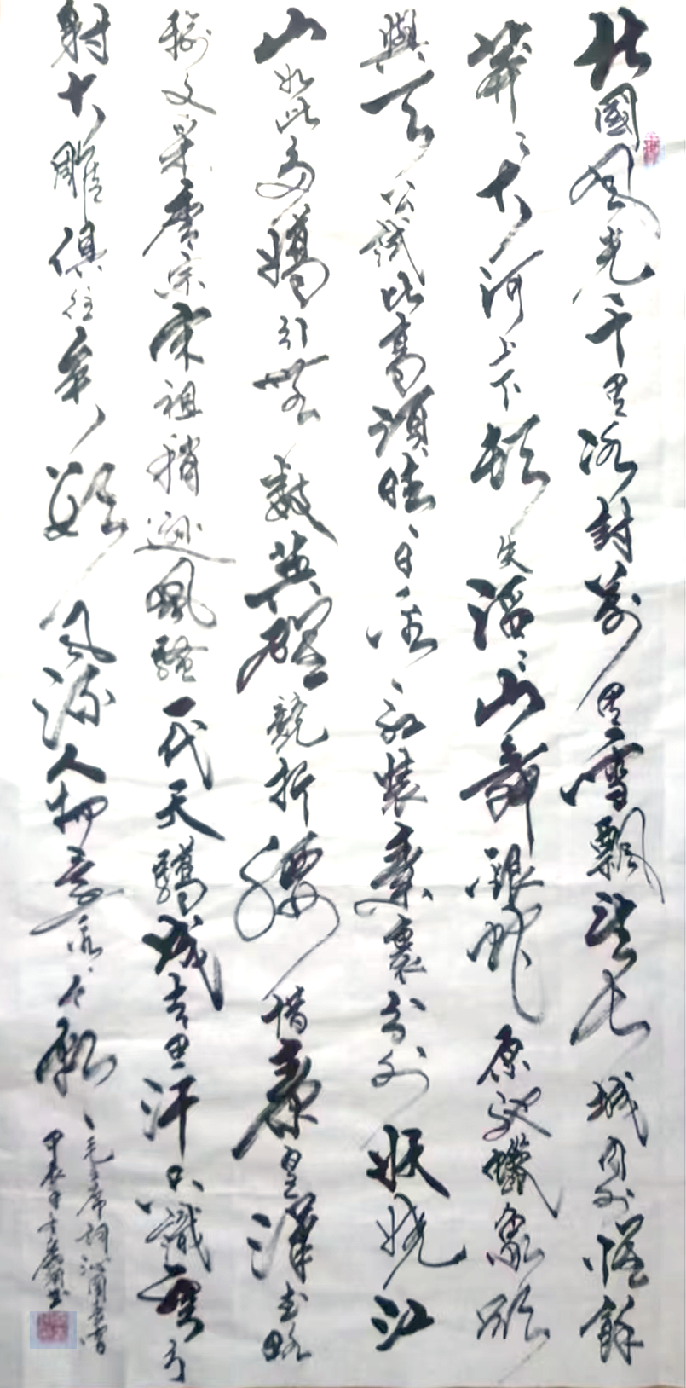 北國風光千里冰封萬里雪飄望長城内外惟餘
莽〻大河上下頓失滔〻山舞銀蛇原馳蠟象欲
與天公試比高須晴日看紅裝素裹分外妖嬈江
山如此多嬌引無數英雄競折腰惜秦皇漢武略
輸文采唐宗宋祖稍遜風騷一代天驕成吉思汗只識彎弓
射大雕俱往矣數風流人物還看今朝
毛主席詞沁園春雪
甲辰年書